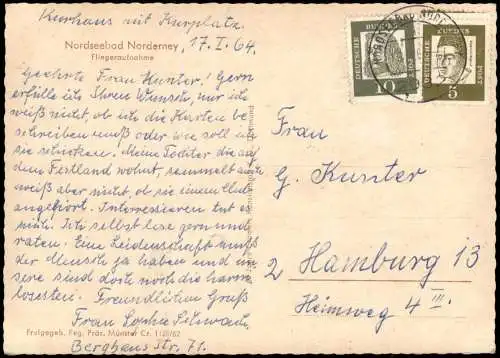 Kurhaus mit Kurplatz.
Nordseebad Norderney, 17. I. 64.
Fliegeraufnahme
Geehrte Frau Kunter! Gern
erfülle ich Ihren Wunsch, nur ich
weiß nicht, ob ich die Karten be
schreiben muß oder wie soll ich
sie schicken. Meine Tochter die auf
dem Festland wohnt, sammelt auch
weiß aber nicht, ob sie einem Club
angehört. Interressieren tut es
mich. Ich selbst lese gern und
raten. Eine Leidenschaft muß
der Mensch ja haben und un
sere sind doch noch die harm
losesten. Freundlichen Gruß
Frau Sophie
Berghaus Str. 71.
Freigegeb. Reg. Präs. Münster Cr. 1120/62
DEUTSCHE
BUNDES
POST
10
DEUTSCHE
BUNDES
POST
5
Frau
G. Kunter
2 Hamburg 13
Heimweg 4 III.